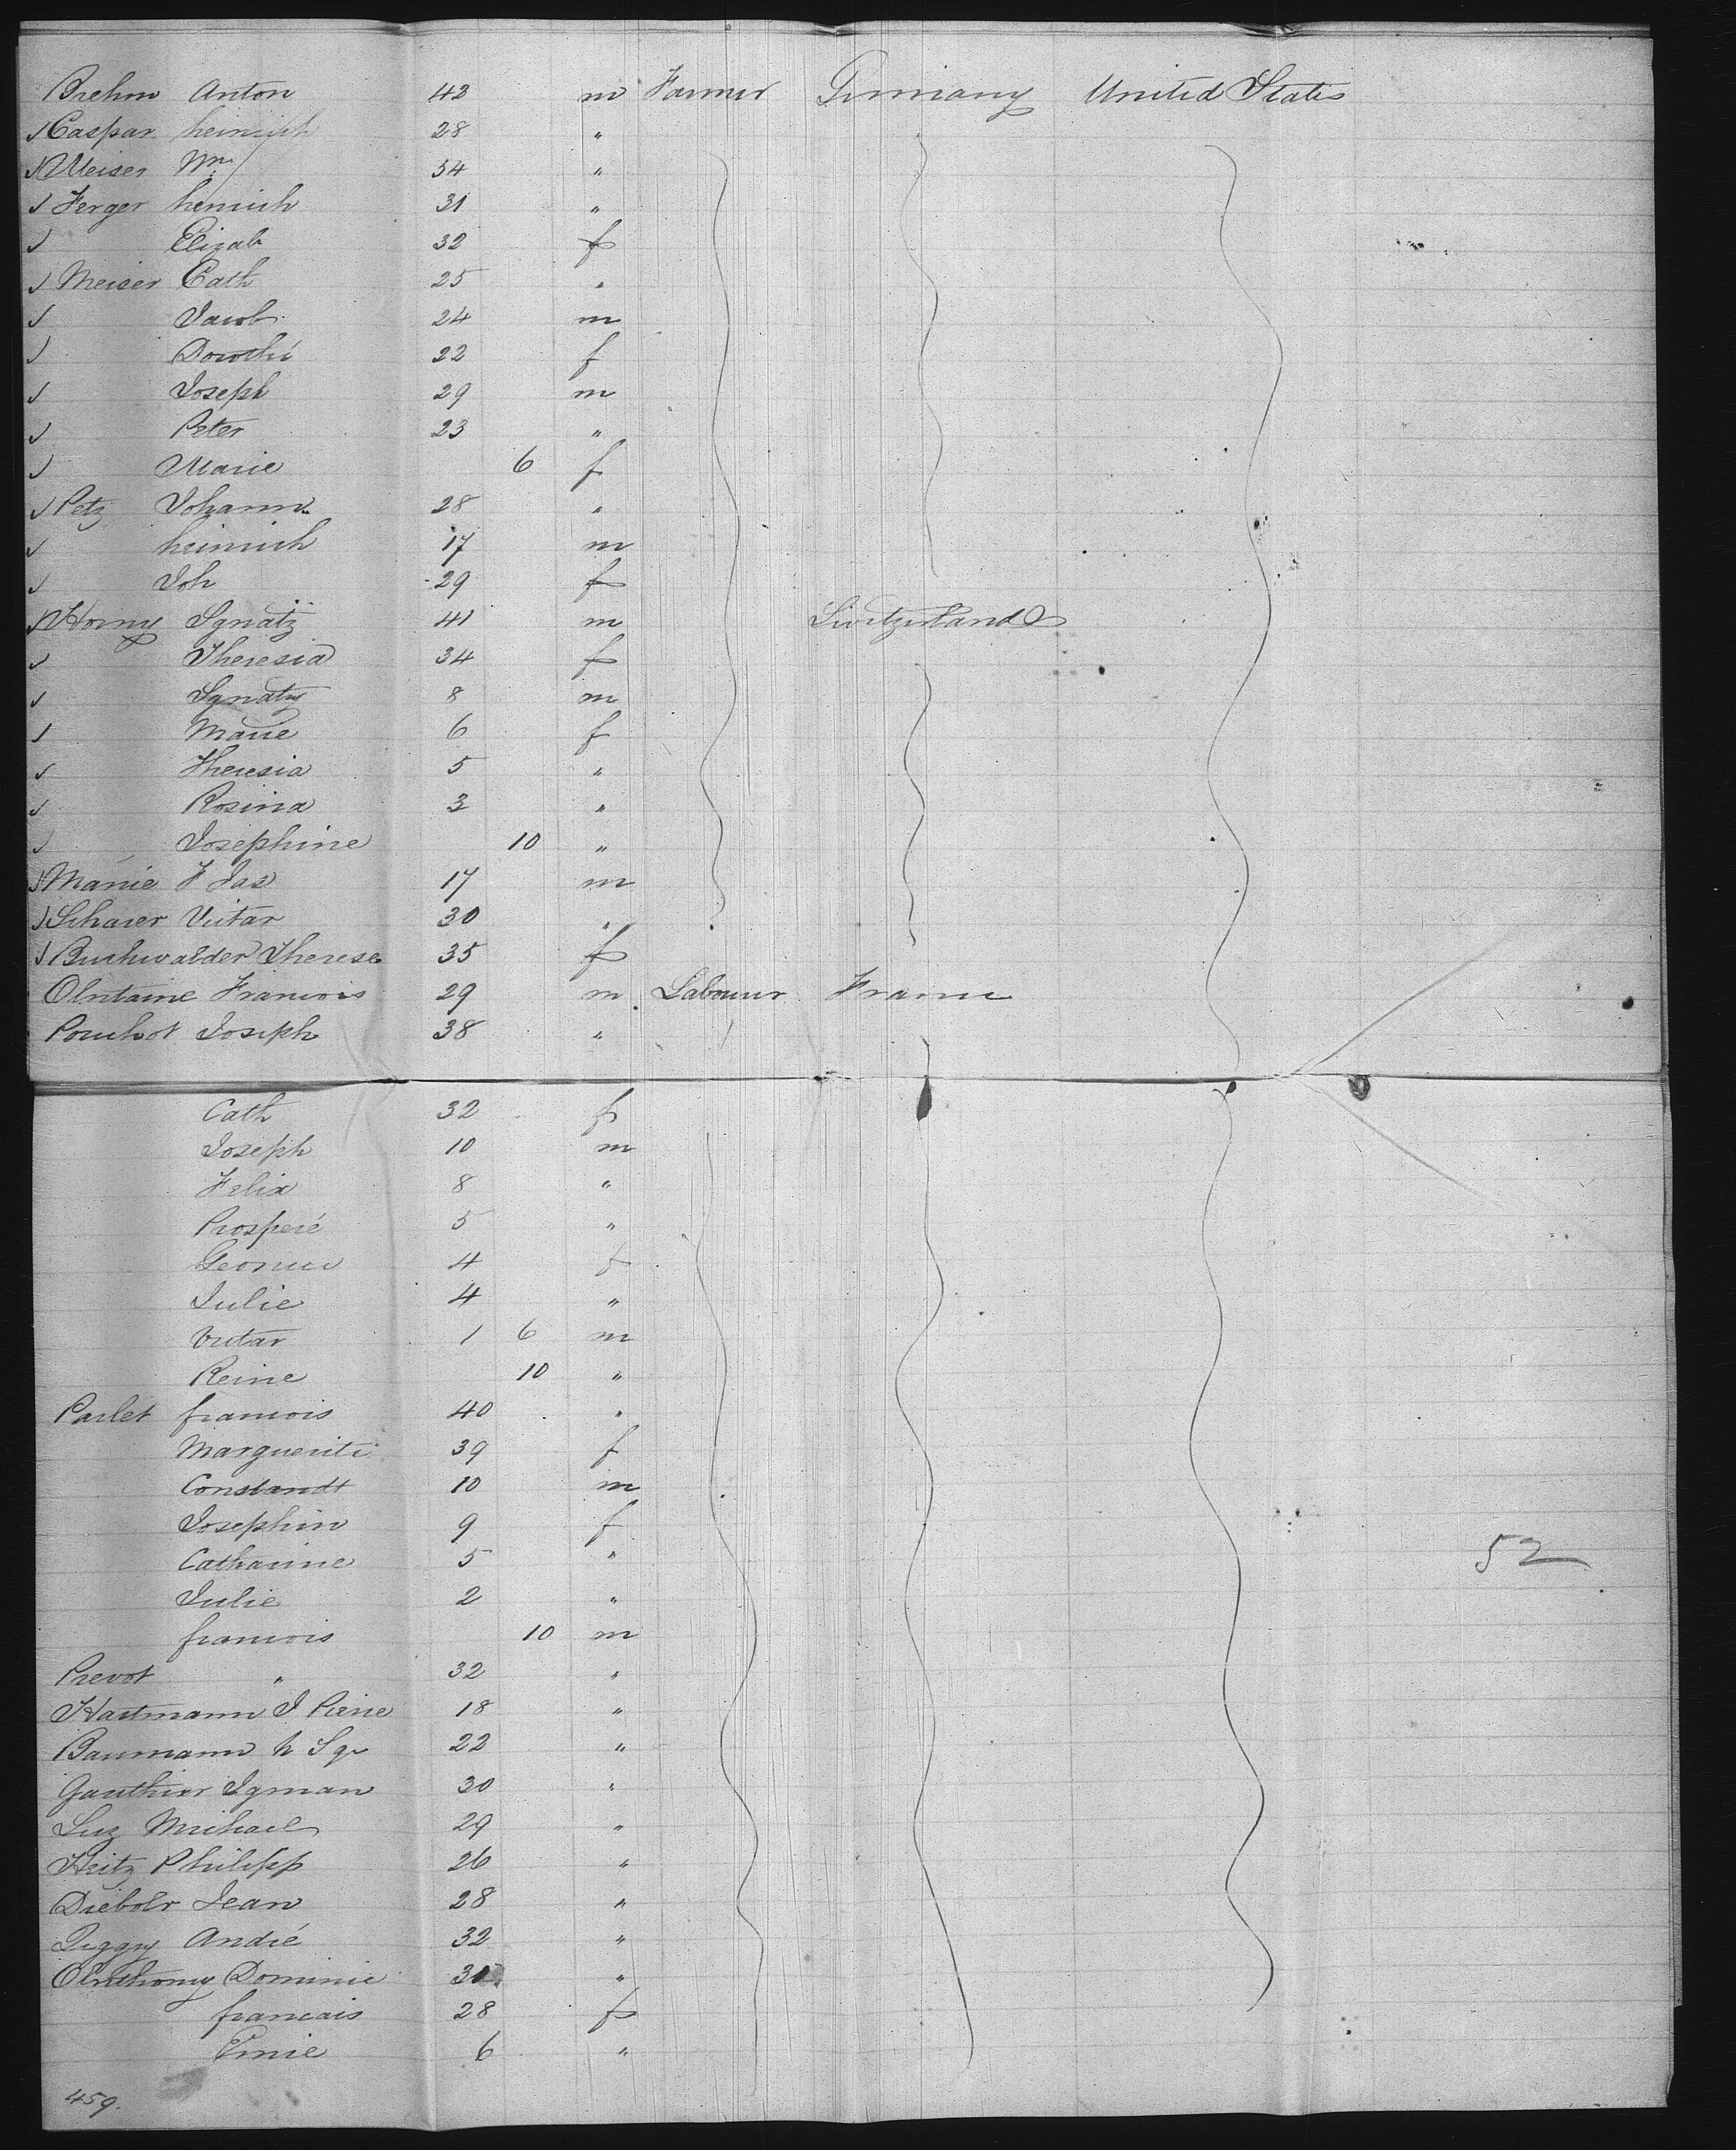 Brehm Anton 43 m Farmer Germany United States
✓ Caspar heinrich 28 "
✓ Meiser Wm 54 "
✓ Ferger heinrich 31 "
✓ Elizab 32 f
✓ Meiser Cath 25 "
✓ Jacob 24 m
✓ Dorothé 22 f
✓ Joseph 29 m
✓ Peter 23 "
✓ Marie 6 f
✓ Petz Johann 28 "
✓ heinrich 17 m
✓ Joh 29 f
✓ Horny Ignatz 41 m Switzerland
✓ Theresia 34 f
✓ Ignatz 8 m
✓ Marie 6 f
✓ Theresia 5 "
✓ Rosina 3 "
✓ Josephine 10 "
✓ Manie F Jas 17 m
✓ Scharer Victar 30 "
✓ Buchwalder Therese 35 f
Antaine Francois 29 m Labourer France
Pouchot Joseph 38 "
Cath 32 f
Joseph 10 m
Felix 8 "
Prosperé 5 "
4 f
Julie 4 "
Victar 1 6 m
Reine 10 "
Parlet francois 40 "
Marguerite 39 f
Constandt 10 m
Josephin 9 f
Catharine 5 "
Julie 2 "
francois 10 m
Prevot " 32 "
Hartmann J Pierre 18 "
Baumann h Ig 22 "
Gauthier Igman 30 "
Luz Michael 29 "
Heitz Philipp 26 "
Diebolr Jean 28 "
André 32 "
Anthony Dominic 30 "
francais 28 f
6 "
52
459.